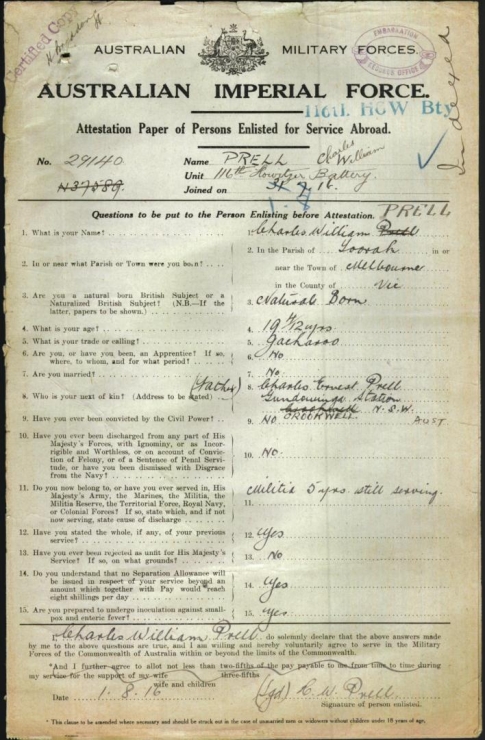 Certified Copy
AUSTRALIAN MILITARY FORCES.
EMBARKATION
AUSTRALIAN IMPERIAL FORCE.
116th HOW Bty
Indexed
Attestation Paper of Persons Enlisted for Service Abroad.
No. 29140 Name PRELL Charles William
N37589. Unit 116th Howitzer Battery.
Joined on 31 7 16.
1 - 8
Questions to be put to the Person Enlisting before Attestation. PRELL
1. What is your Name? 1. Charles William Prell
2. In or near what Parish or Town were you born? 2. In the Parish of Toorak in or
near the Town of Melbourne
in the County of Vic
3. Are you a natural born British Subject or a
Naturalized British Subject? (N.B.—If the
latter, papers to be shown.) 3. Natural Born
4. What is your age? 4. 19 yrs
5. What is your trade or calling? 5. Jackaroo
6. Are you, or have you been, an Apprentice? If so,
where, to whom, and for what period? 6. No
7. Are you married? 7. No
8. Who is your next of kin? (Address to be stated) (Father) 8. Charles Ernest Prell
Gundowringa Station
CROOKWELL N.S.W.
AUST
9. Have you ever been convicted by the Civil Power? 9. No
10. Have you ever been discharged from any part of His
Majesty's Forces, with Ignominy, or as Incor-
rigible and Worthless, or on account of Convic-
tion of Felony, or of a Sentence of Penal Servi-
tude, or have you been Dismissed with Disgrace
from the Navy? 10. No.
11. Do you now belong to, or have you ever served in, His
Majesty's Army, the Marines, the Militia, the
Militia Reserve, the Territorial Force, Royal Navy,
or Colonial Forces? If so, state which, and if not
now serving, state cause of discharge 11. Militia 5 yrs. still serving.
12. Have you stated the whole, if any, of your previous
service? 12. Yes
13. Have you ever been rejected as unfit for His Majesty's
Service? If so, on what grounds? 13. No
14. Do you understand that no Separation Allowance will
be issued in respect of your service beyond an
amount which together with Pay would reach
eight shillings per day 14. Yes
15. Are you prepared to undergo inoculation against small-
pox and enteric fever? 15. Yes
I, Charles William Prell do solemnly declare that the above answers made
by me to the above questions are true, and I am willing and hereby voluntarily agree to serve in the Military
Forces of the Commonwealth of Australia within or beyond the limits of the Commonwealth.
*And I further agree to allot not less than two-fifths of the pay payable to me from time to time during
three-fifths
my service for the support of my wife
wife and children
Date 1. 8. 16 (Sgd) C. W. Prell
Signature of person enlisted.
* This clause to be amended where necessary and should be struck out in the case of unmarried men or widowers without children under 18 years of age.